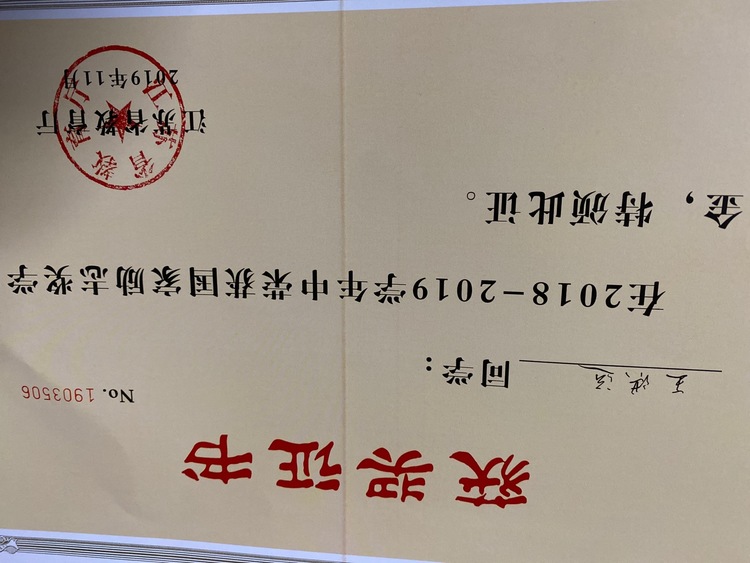 获奖证书
No. 1903506
王 同学：
在2018-2019学年中荣获国家励志奖学
金，特颁此证。
江苏省教育厅
2019年11月
江苏省教育厅